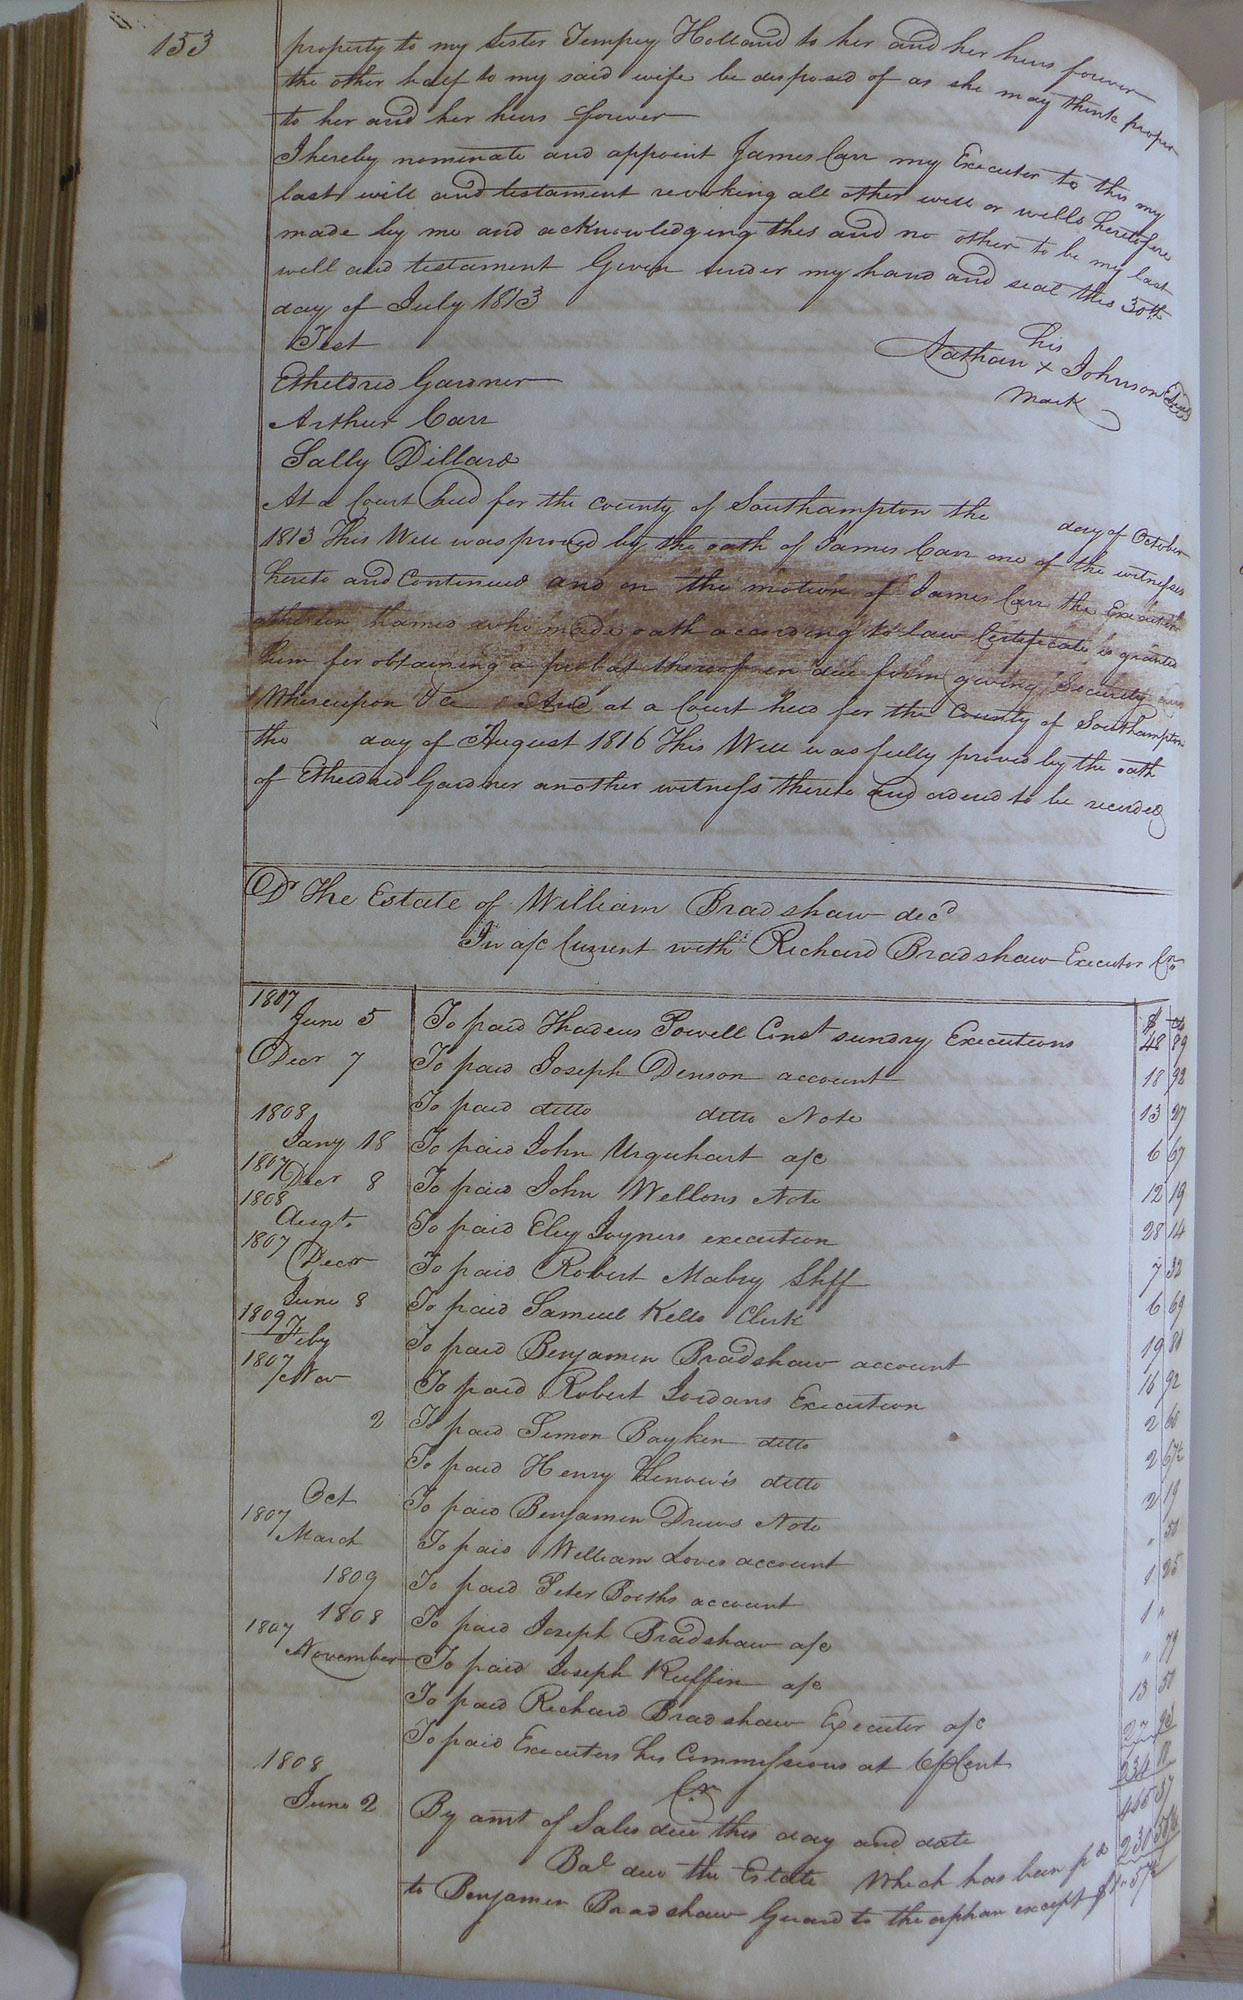 153
property to my Sister Tempey Holland to her and her heirs forever
the other half to my said wife be disposed of as she may think proper
to her and her heirs forever
I hereby nominate and appoint James Carr my Executor to this my
last will and testament revoking all other will or wills heretofore
made by me and acknowledging this and no other to be my last
will and testament Given under my hand and seal this 30th
day of July 1813
Test
his
Nathan x Johnson
mark
Etheldred Gardner
Arthur Carr
Sally Dillard
At a Court held for the County of Southampton the day of October
1813 This Will was proved by the oath of James Carr one of the witnesses
hereto and Continued and on the motion of James Carr the Executor
therein named who made oath according to law Certificate is granted
him for obtaining a probat thereof in due form giving Security
Whereupon &c And at a Court held for the County of Southampton
the day of August 1816 This Will was fully proved by the oath
of Etheldred Gardner another witness thereto and ordered to be recorded
Dr The Estate of William Bradshaw decd
In a/c Current with Richard Bradshaw Executor Cr
1807 $ cts
June 5 To paid Thadeus Powell Const sundry Executions 48 89
Decr 7 To paid Joseph Denson account 18 92
To paid ditto ditto Note 13 27
1808
Jany 18 To paid John Urquhart a/c 6 67
1807
Decr 8 To paid John Wellons Note 12 19
1808
Augt. To paid Eley Joyners execution 28 14
1807
Decr To paid Robert Mabry Shff 7 32
June 8 To paid Samuel Kello Clerk 6 69
1809
Feby To paid Benjamin Bradshaw account 19 81
1807
Nov To paid Robert Jordans Execution 16 92
2 To paid Simon Boykin ditto 2 60
To paid Henry ditto 2 67½
Oct To paid Benjamin Drews Note 2 19
1807
March To paid William Loves account " 50
1809 To paid Peter Booths account 1 25
1808 To paid Joseph Bradshaw a/c 1 "
1807
November To paid Joseph Ruffin a/c " 79
To paid Richard Bradshaw Executor a/c 13 50
To paid Executors his Commissions at 6 pCent 27
234 11
1808 Cr
June 2 By amt of Sales due this day and date 465
Bal due the Estate Which has been pd 230
to Benjamin Bradshaw Guard to the orphan except